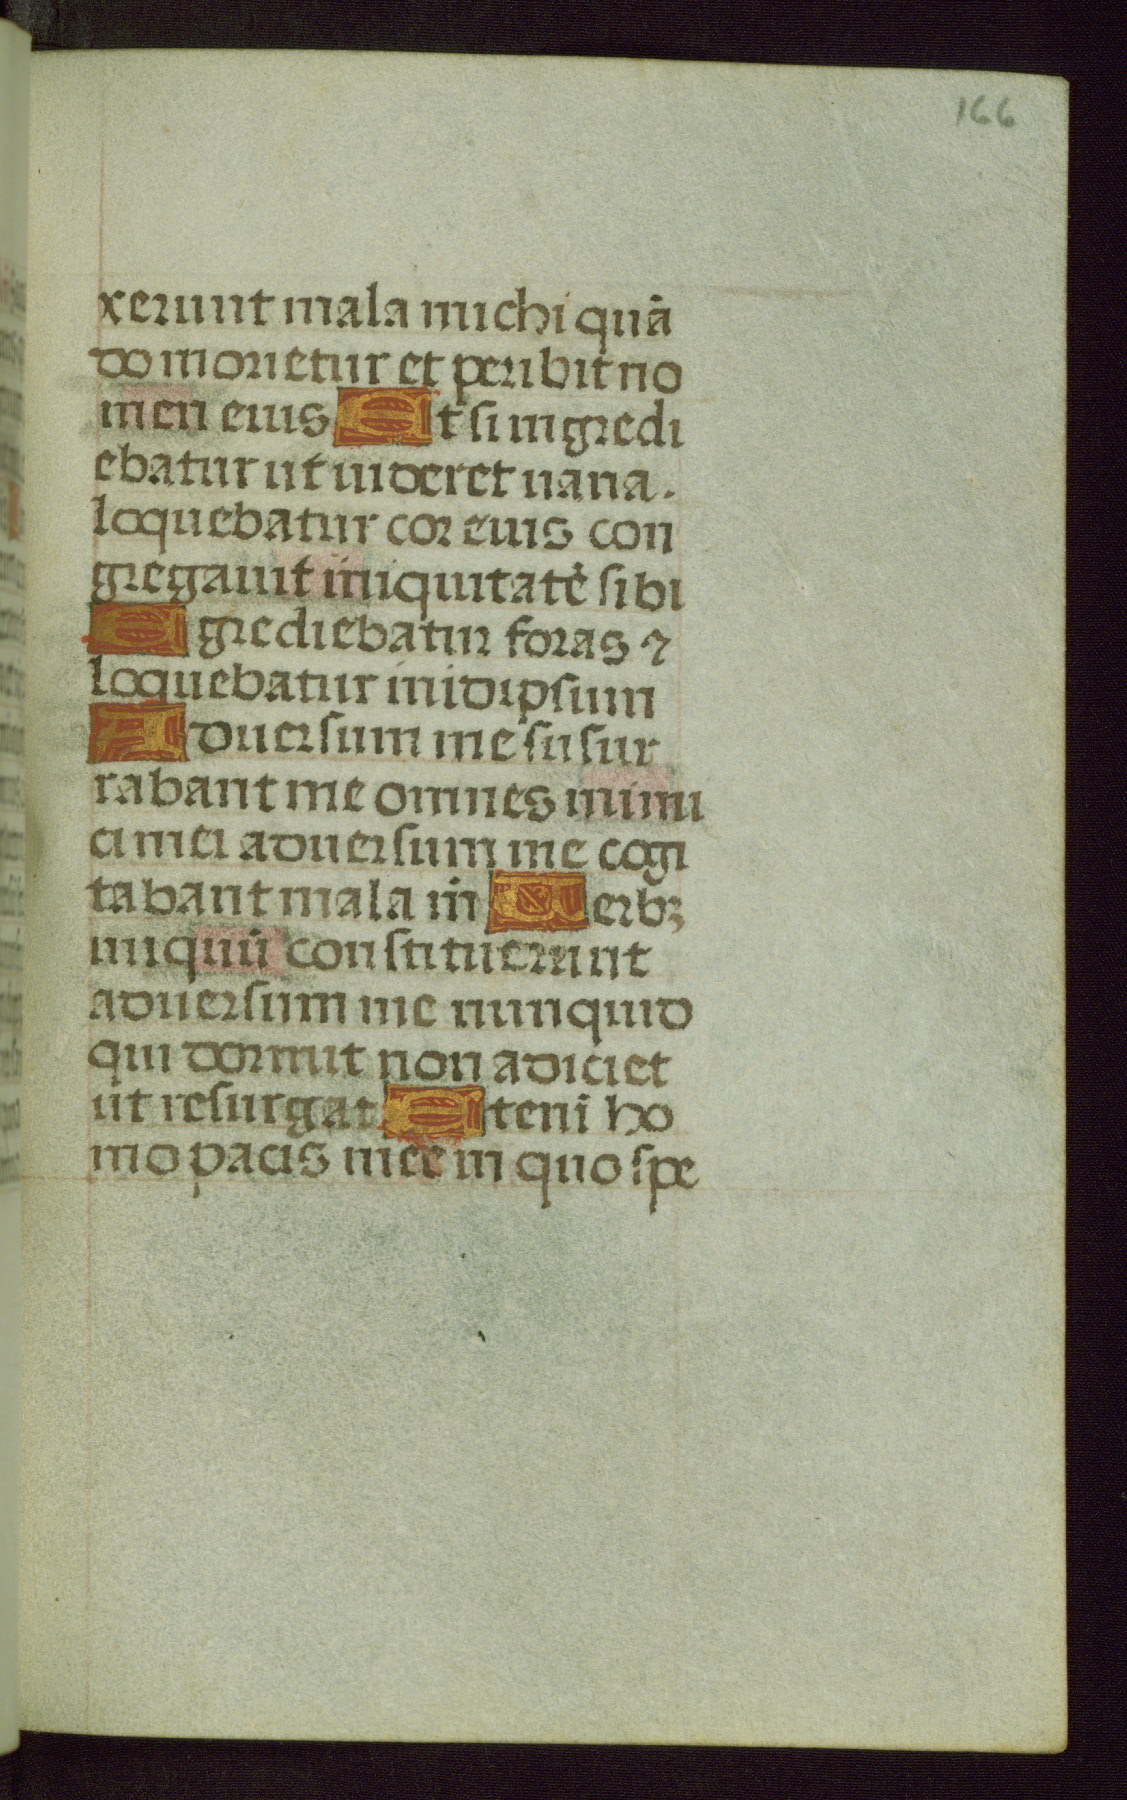 166
xerunt mala michi quā
do morietur et peribit no
men eius Et si ingredi
ebatur ut uideret uana.
loquebatur cor euis con
gregauit iniquitatē sibi
Egrediebatur foras ⁊
loquebatur in idipsum
Aduersum me susur
rabant me omnes inimi
ci mei aduersum me cogi
tabant mala m̄ Uerbꝫ
iniquū constituerunt
aduersum me nunquid
qui dormit non adiciet
ut resurgat Etenī ho
mo pacis mee in quo spe